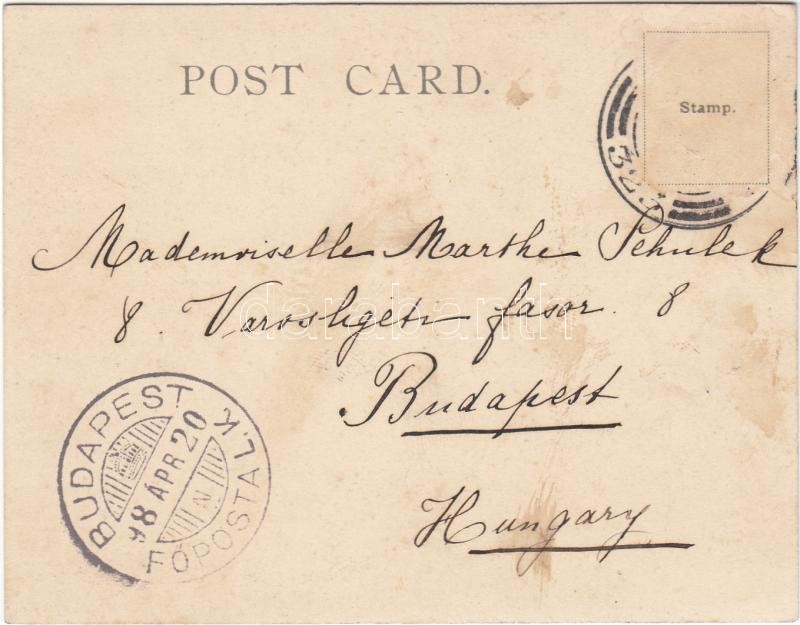 POST CARD.
Stamp.
323
Mademoiselle Marthe Schulek
8. Varosligeti fasor. 8
darabanth
Budapest
Hungary
BUDAPEST
98 ÁPR 20
N
FŐPOSTA L.K